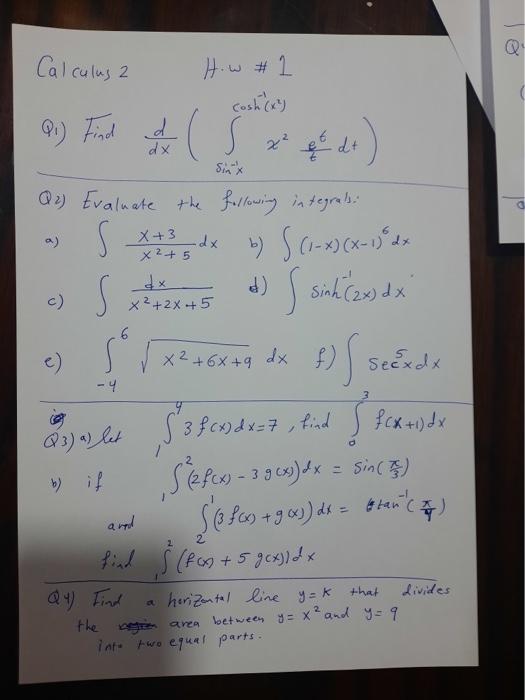 Calculus 2 H.w # 1
Q1) Find d/dx ( ∫_{sin⁻¹x}^{cosh⁻¹(x²)} x² e^t/t dt )
Q2) Evaluate the following integrals:
a) ∫ (x+3)/(x²+5) dx b) ∫ (1-x)(x-1)⁶ dx
c) ∫ dx/(x²+2x+5) d) ∫ sinh⁻¹(2x) dx
e) ∫_{-4}^{6} √(x²+6x+9) dx f) ∫ sec⁵x dx
Q3) a) let ∫_1^4 3f(x)dx=7, find ∫_0^3 f(x+1)dx
b) if ∫_1^2 (2f(x) - 3g(x))dx = sin(π/3)
and ∫_2^1 (3f(x) + g(x)) dx = tan⁻¹(π/4)
find ∫_1^2 (f(x) + 5g(x))dx
Q4) Find a horizontal line y=k that divides
the area between y=x² and y=9
into two equal parts.
Q